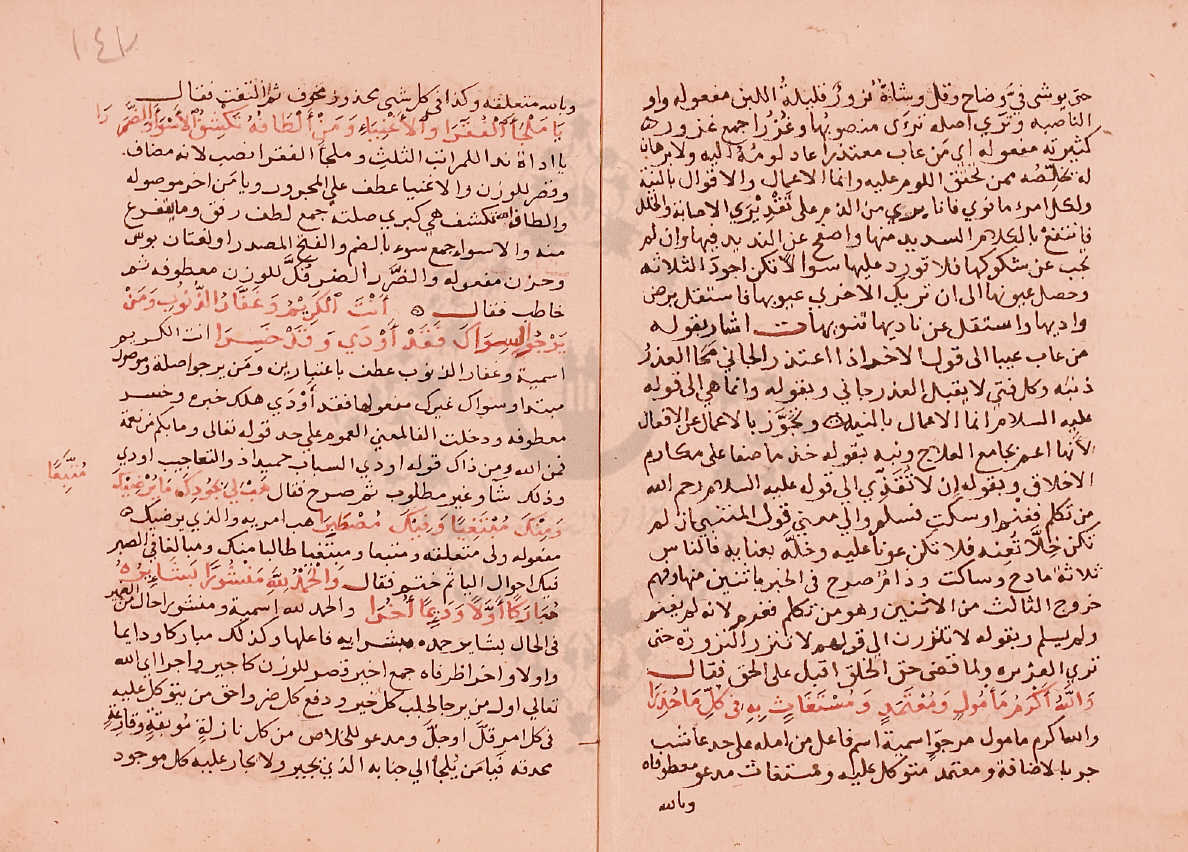 حتى يوشى في وضاح وقل وشاة نزور قليلة اللبن مفعوله واو
الناصبه وتري اصله ترءى منصوبها وغزرا جمع غزور
كثيرته مفعوله اي من عاب معتذرا عاد لومه اليه ولا برهان
له يخلصه ممن تحقق اللوم عليه وانما الاعمال والاقوال بالنية
ولكل امرء ما نوي فانا بري من الذم على تقديري الاصابة والخلل
فانتفع بالكلام السديد منها واصفح عن النديد فيها وان لم
تجب عن شكوكها فلا تورد عليها سوالا تكن اجود الثلاثه
وحصل عيونها الى ان تريك الاخري عيوبها فاستقل برض
واديها واستقل عن ناديها تنويها اشار بقوله
من عاب عيبا الى قول الاخر اذا اعتذر الجاني محا العذر
ذنبه وكل فتى لا يقبل العذر جاني وبقوله وانما هي الى قوله
عليه السلام انما الاعمال بالنيات وتجوز بالاعمال عن الافعال
لانها اعم بجامع العلاج ونبه بقوله خذ ما صفا على مكارم
الاخلاق وبقوله ان لا تقذي الى قوله عليه السلام رحم الله
من تكلم فغنم او سكت فسلم والي معني قول المتنبي ان لم
تكن خلا تعنه فلا تكن عونا عليه وخله بعنا به فالناس
ثلاثة مادح وساكت وذام صرح في الخبر باثنين منها وفهم
خروج الثالث من الاثنين وهو من تكلم فغرم لانه لم يغنم
ولم يسلم وبقوله لا تنزرن الى قولهم لا تنزر النزورة حتى
تري الغزيره ولما قضى حق الخلق اقبل على الحق فقال
والله اكرم مأمول ومعتمد ومستغاث به في كل ما حذرا
والله اكرم مامول مرجو اسمية اسم فاعل من امله على حد عاشب
جر بالاضافة ومعتمد متوكل عليه ومستغاث مدعو معطوفاه
وبالله
١٤٧
وبالله متعلقه وكذا في كل شي محذور مخوف ثم التفت فقال
يا ملجأ الفقرا والاغنياء ومن الطافه تكشف الاسواء والضررا
يا اداة ندا للمراتب الثلث وملجا الفقرا نصب لانه مضاف
وقصر للوزن والاغنيا عطف على المجرور ويا من اخر موصوله
والطافه تكشف هي كبري صلته جمع لطف رفق وما يتفرع
منه والاسواء جمع سوء بالضم والفتح المصدر او لغتان بوس
وحزن مفعوله والضرر الضر فك للوزن معطوفه ثم
خاطب فقال انت الكريم وغفار الذنوب ومن
يرجو السواك فقد أودي وقد خسرا انت الكريم
اسمية وغفار الذنوب عطف باعتبارين ومن يرجوا صلة وموصول
مبتدا وسواك غيرك مفعولها فقد أودي هلك خبره وخسر
معطوفه ودخلت الفا لمعني العموم على حد قوله تعالى وما بكم من نعمة
فمن الله ومن ذاك قوله اودي الشباب حميدا ذو التعاجيب اودي
وذلك شأو غير مطلوب ثم صرح فقال هب لي بجودك ما يرضيك
متبعا
ومنك مبتغيا وفيك مصطبرا هب امريه والذي يرضيك
مفعوله ولى متعلقه ومتبعا ومبتغيا طالبا منك ومبالغا في الصبر
فيك احوال اليا ثم ختم فقال والحمد لله منشورا بشايره
مباركا أولا ودايما أخرا والحمد لله اسمية ومنشورا حال من الضمير
في الحال بشاير حمده مبشراته فاعلها وكذلك مباركا ودايما
واولا واخرا ظرفاه جمع اخير قصر للوزن كاجير واجرا اي الله
تعالي اولى من يرجا لجلب كل خير ودفع كل ضر واحق من يتوكل عليه
في كل امر قل او جل ومدعو للخلاص من كل نازلة موبقة وقارعة
محدقه فيا من يلجأ الى جنابه الذي يجير ولا يجار عليه كل موجود